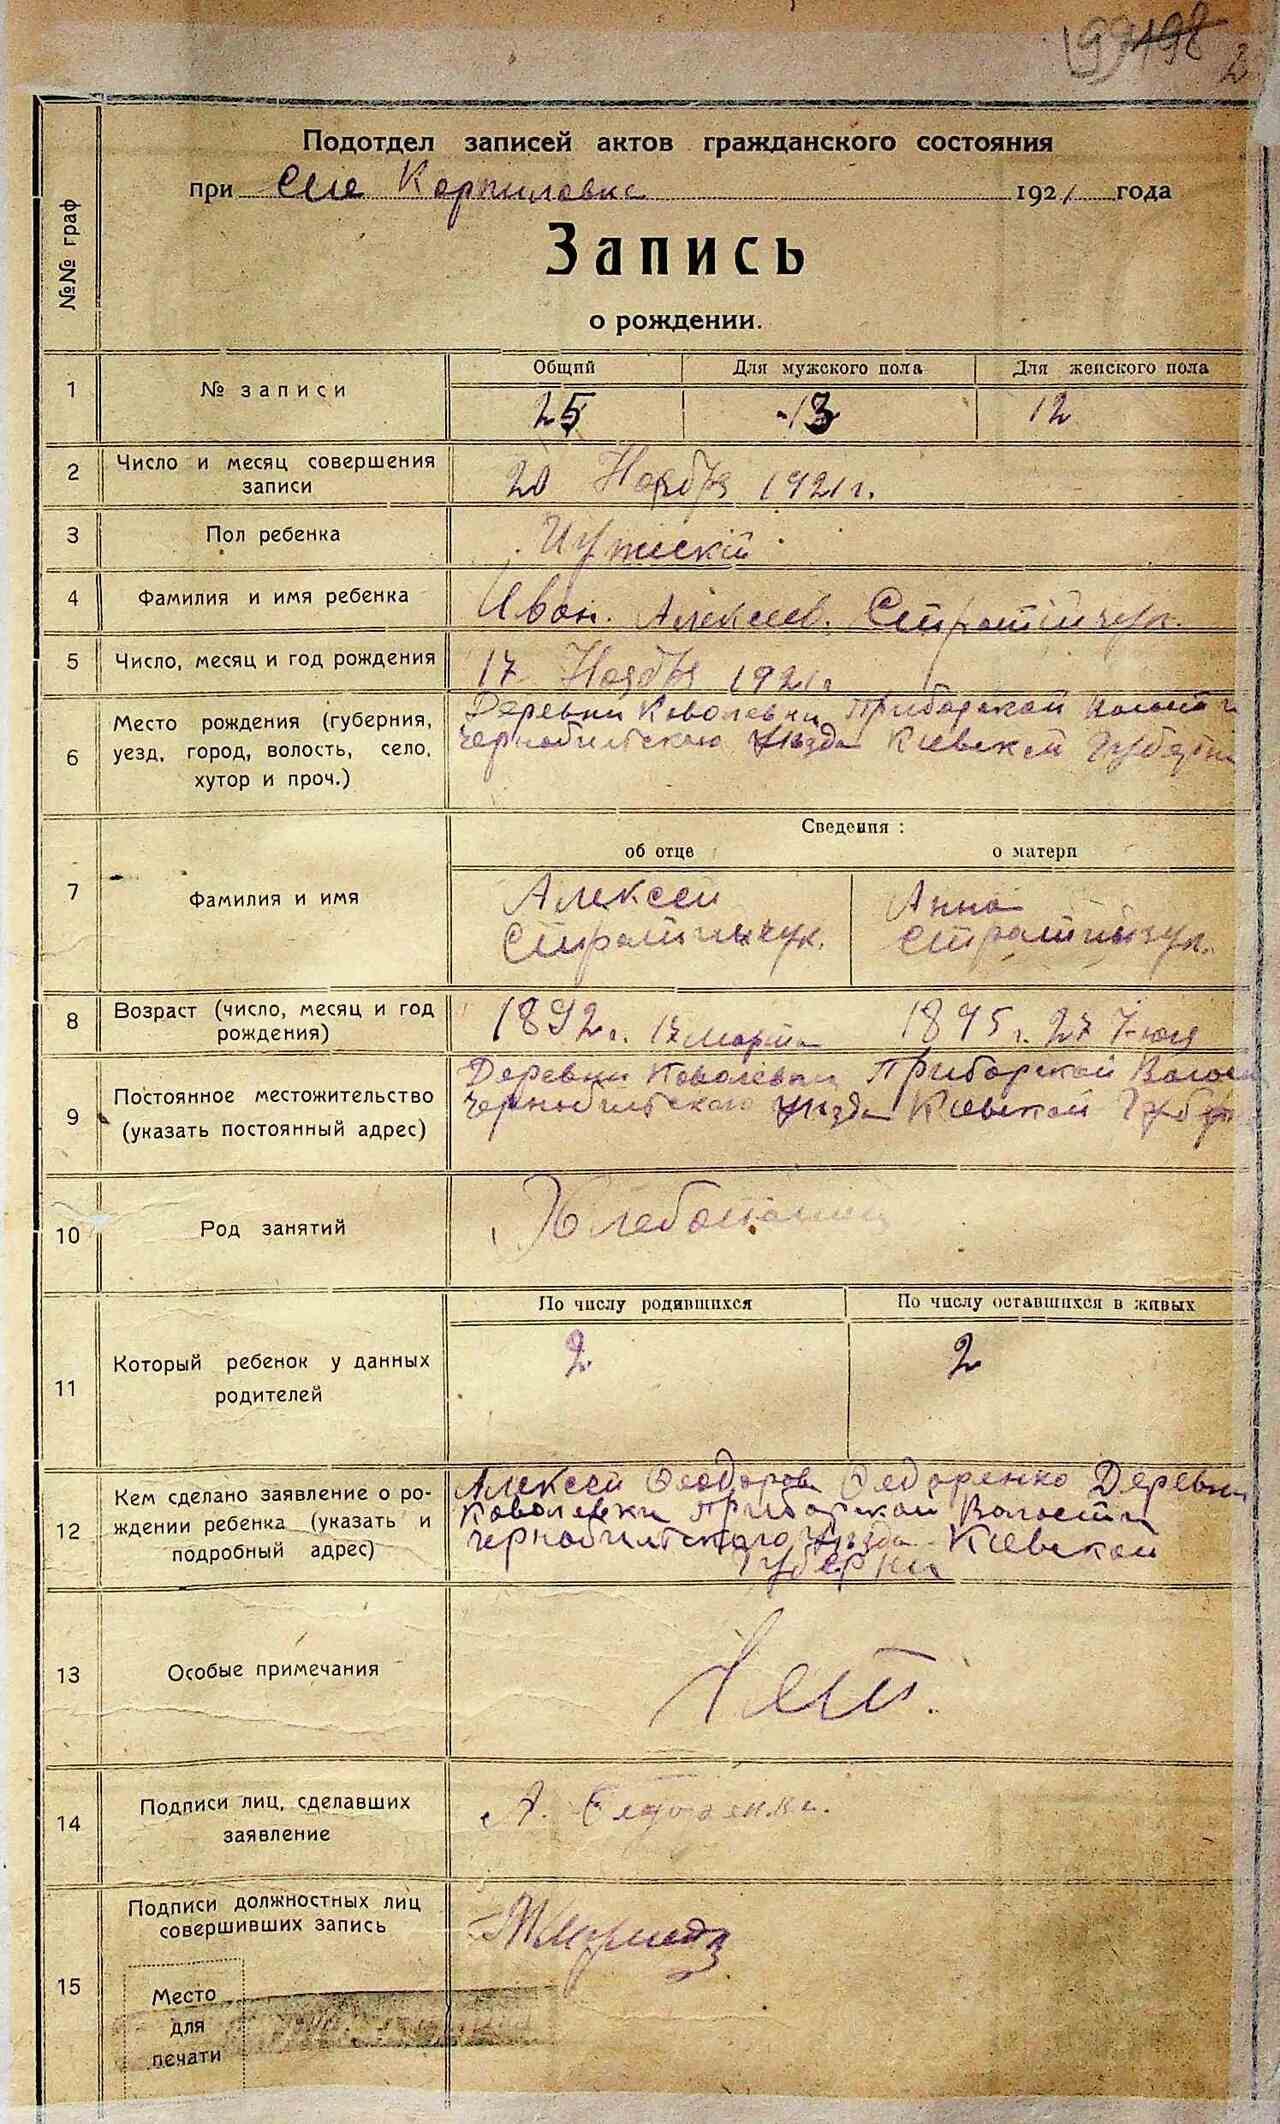 198 2
Подотдел записей актов гражданского состояния
при Селе Карпиловке 1921 года
№№ граф
Запись
о рождении.
1 № записи Общий Для мужского пола Для женского пола
25 13 12
2 Число и месяц совершения
записи
20 Ноября 1921 г.
3 Пол ребенка Мужескій
4 Фамилия и имя ребенка Иван. Алексеев.
5 Число, месяц и год рождения 17 Ноября 1921 г
6 Место рождения (губерния,
уезд, город, волость, село,
хутор и проч.)
Деревни Коволевки Приборской Волости
Чернобильского уѣзда Киевской Губерни
Сведения:
об отце о матери
7 Фамилия и имя
Алексей Анна
8 Возраст (число, месяц и год
рождения)
1892 г. 17 марта 1895 г. 27 Июля
9 Постоянное местожительство
(указать постоянный адрес)
Деревни Коволевки Приборской Волости
Чернобильского уѣзда Киевской Губер
10 Род занятий Хлебопашец
По числу родившихся По числу оставшихся в живых
11 Который ребенок у данных
родителей
2 2
12 Кем сделано заявление о ро-
ждении ребенка (указать и
подробный адрес)
Алексей Феодоров Федоренко Деревни
Коволевки Приборской Волости
Чернобильского уѣзда Киевской
Губерни
13 Особые примечания Нет.
14 Подписи лиц, сделавших
заявление
А. Федоренко.
15 Подписи должностных лиц
совершивших запись
Место
для
печати